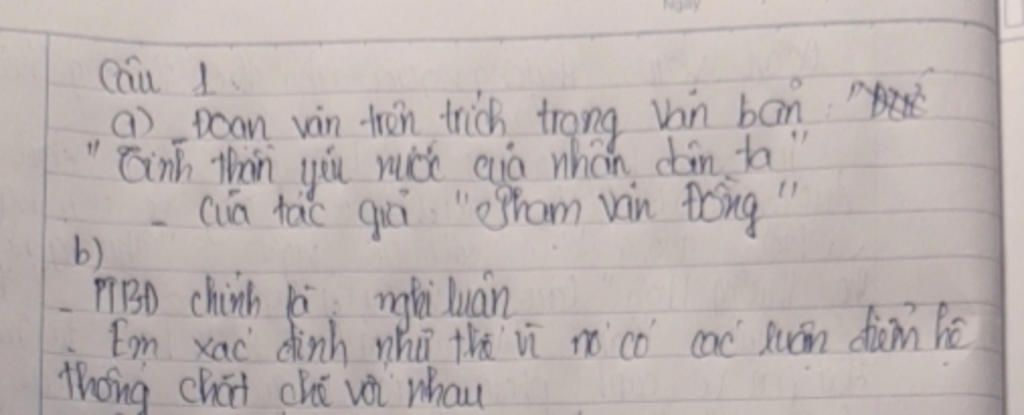 Ngày
Câu 1.
a) - Đoạn văn trên trích trong văn bản: "
"Tinh thần yêu nước của nhân dân ta"
- Của tác giả "Phạm Văn Đồng"
b)
- PTBĐ chính là: nghị luận
- Em xác định như thế vì nó có các luận điểm hệ
thống chặt chẽ với nhau